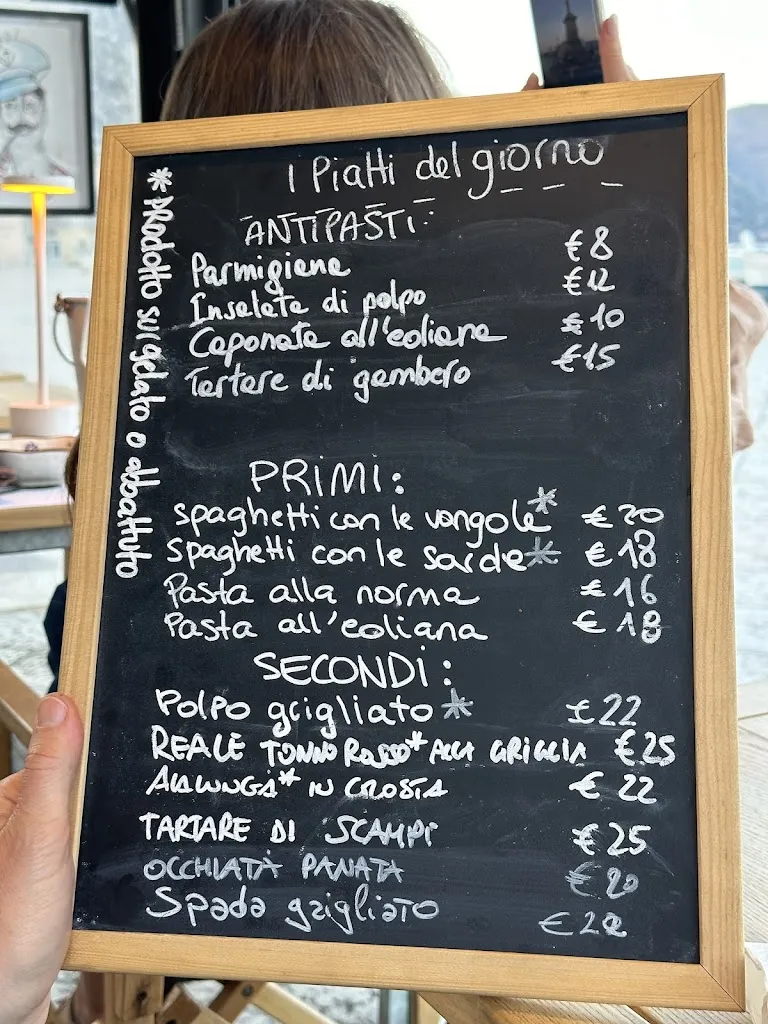 I Piatti del giorno
ANTIPASTI:
Parmigiana €8
Insalata di polpo €12
Caponata all'eoliana €10
Tartare di gambero €15
PRIMI:
spaghetti con le vongole* €20
spaghetti con le sarde* €18
Pasta alla norma €16
Pasta all'eoliana €18
SECONDI:
Polpo grigliato* €22
REALE TONNO ROSSO* ALLA GRIGLIA €25
ALALUNGA* IN CROSTA €22
TARTARE DI SCAMPI €25
OCCHIATA PANATA €20
Spada grigliato
*PRodotto surgelato o abbattuto